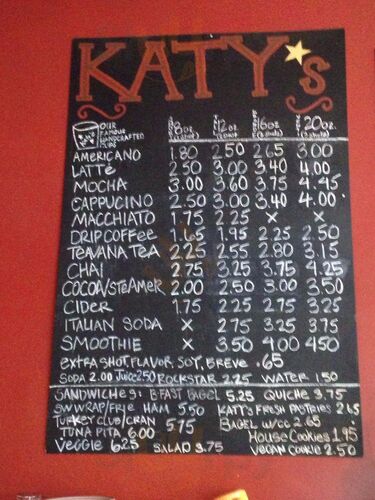 KATY's
OUR
FAMOUS
HANDCRAFTED
CUBS
8oz 12oz 16oz 20oz
AMERICANO 1.80 2.50 2.65 3.00
LATTé 2.50 3.00 3.40 4.00
MOCHA 3.00 3.60 3.75 4.45
CAPPUCINO 2.50 3.00 3.40 4.00
MACCHIATO 1.75 2.25 x x
DRIP COFFee 1.65 1.95 2.25 2.50
TEAVANA TEA 2.25 2.55 2.80 3.15
CHAI 2.75 3.25 3.75 4.25
COCOA/STEAMER 2.00 2.50 3.00 3.50
CIDER 1.75 2.25 2.75 3.25
ITALIAN SODA x 2.75 3.25 3.75
SMOOTHIE x 3.50 4.00 4.50
EXTRA SHOT, FLAVOR, SOY, BREVE .65
SODA 2.00 JUICE 2.50 ROCKSTAR 2.75 WATER 1.50
SANDWICHES: B-FAST BAGEL 5.25 QUICHE 3.75
SW WRAP/FRIE HAM 5.50 KATY's FRESH PASTRIES 2.65
TURKEY CLUB/CRAN 5.75 BAGEL w/cc 2.65
TUNA PITA 6.00 HOUSE COOKIES 1.95
VEGGIE 6.25 SALAD 3.75 VEGAN COOKIE 2.50